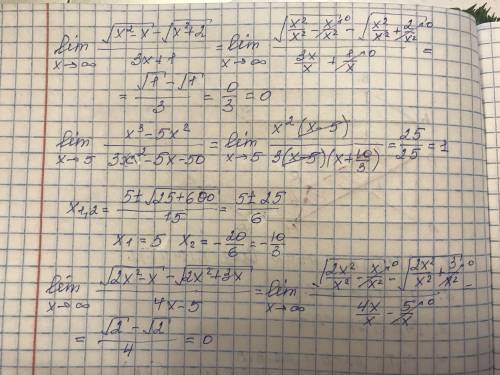 lim x→∞ (√(x²-x) - √(x²+2))/(3x+1) = lim x→∞ (√(x²/x² - x/x²→0) - √(x²/x² + 2/x²→0))/(3x/x + 1/x→0) =
= (√1 - √1)/3 = 0/3 = 0
lim x→5 (x³-5x²)/(3x²-5x-50) = lim x→5 (x²(x-5))/(3(x-5)(x+10/3)) = 25/25 = 1
x₁,₂ = (5±√(25+600))/15 = (5±25)/6
x₁ = 5 x₂ = -20/6 = -10/3
lim x→∞ (√(2x²-x) - √(2x²+3x))/(4x-5) = lim x→∞ (√(2x²/x² - x/x²→0) - √(2x²/x² + 3/x²→0))/(4x/x - 5/x→0) =
= (√2 - √2)/4 = 0